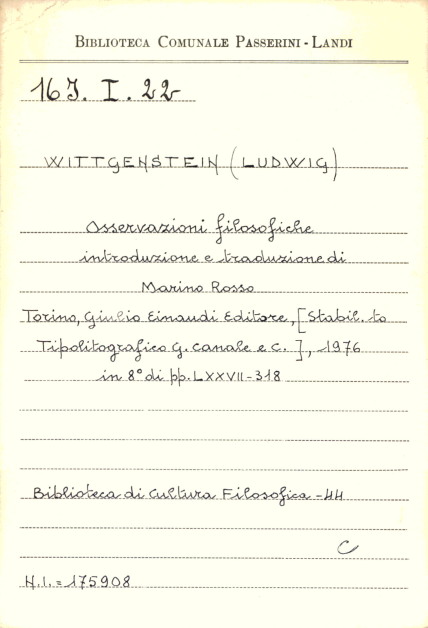 BIBLIOTECA COMUNALE PASSERINI - LANDI
16J. I. 22
WITTGENSTEIN (LUDWIG)
Osservazioni filosofiche
introduzione e traduzione di
Marino Rosso
Torino, Giulio Einaudi Editore, [Stabil. to
Tipolitografico G. Canale e C. ], 1976
in 8° di pp. LXXVII-318
Biblioteca di Cultura Filosofica - 44
C
N.I. = 175908